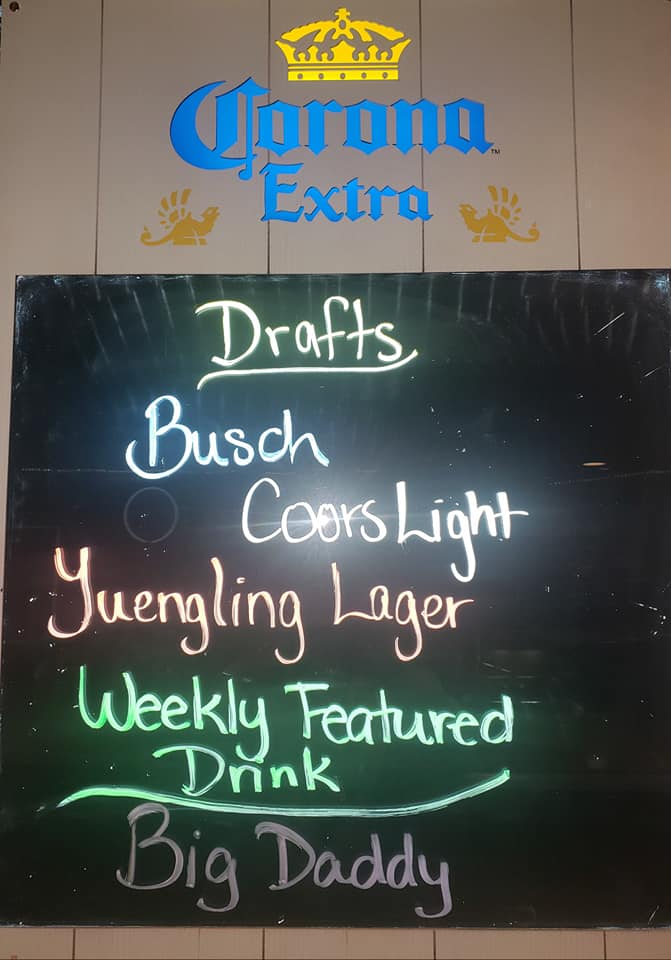 Corona
Extra
™
Drafts
Busch
Coors Light
Yuengling Lager
Weekly Featured
Drink
Big Daddy